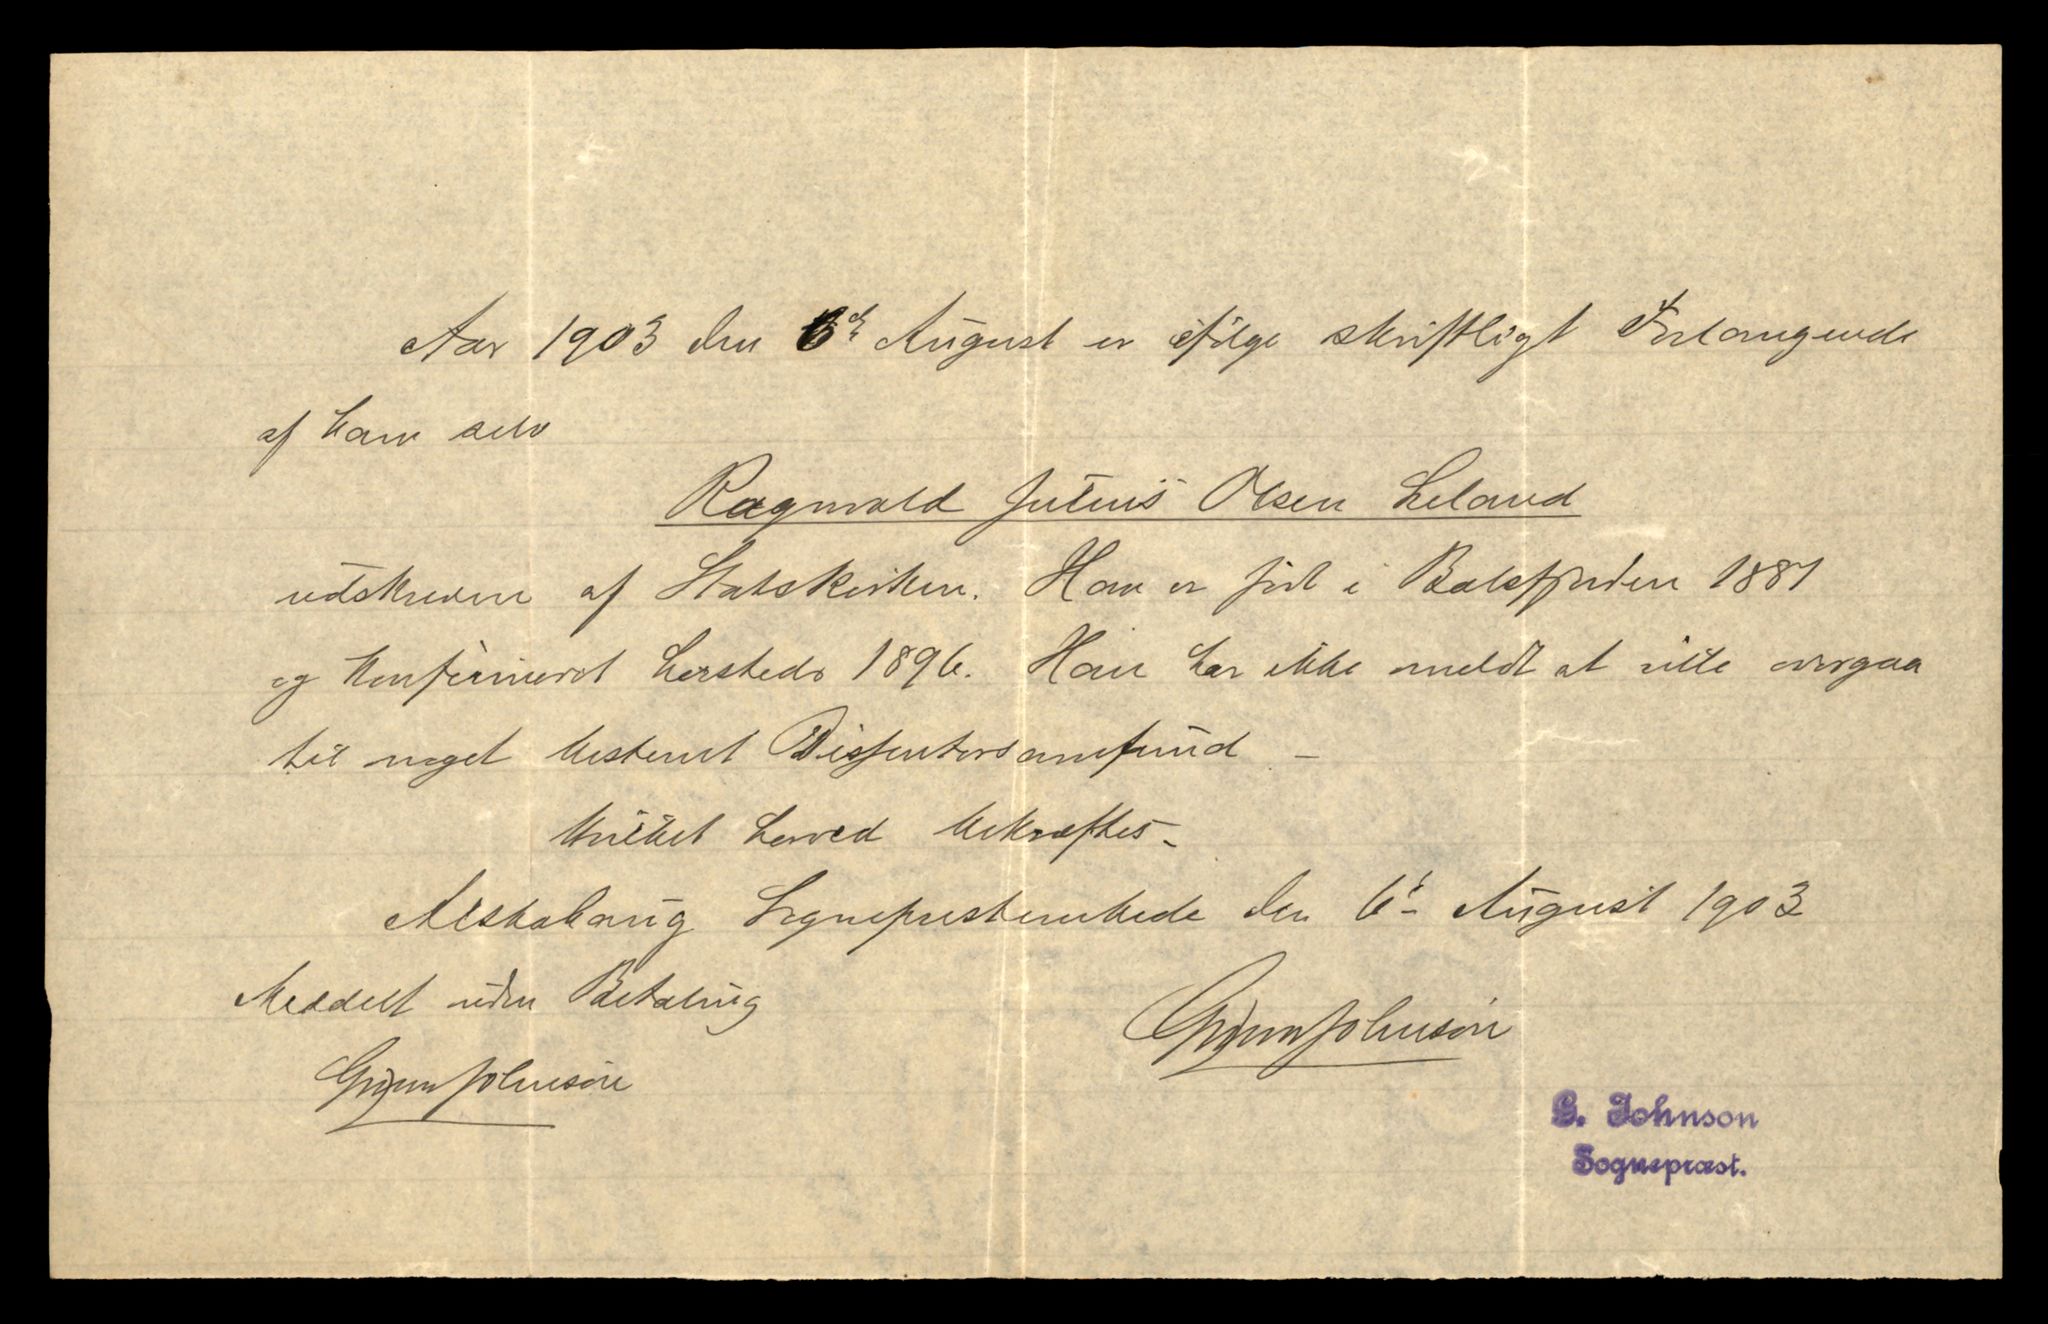 Aar 1903 den 6te August er ifølge skriftligt Forlangende
af ham selv
Ragnvald Julius Olsen Leland
udskreven af Statskirken. Han er født i Balsfjorden 1881
og konfirmeret sammesteds 1896. Han har ikke meldt at ville overgaa
til noget bestemt Dissentersamfund –
hvilket herved bekræftes –
Alstahaug Sogneprestembede den 6te August 1903
Meddelt uden Betaling
Johnson
Johnson
G. Johnson
Sognepræst.